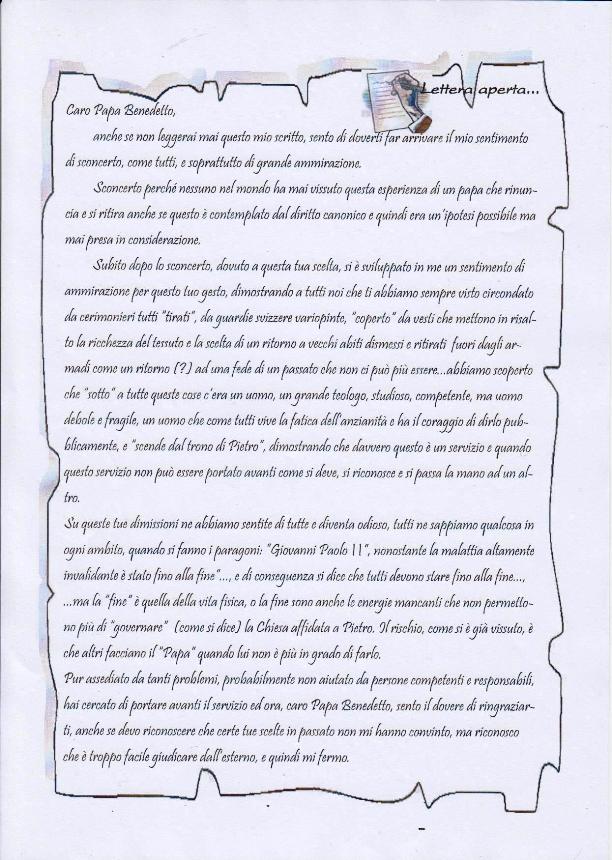 Lettera aperta...
Caro Papa Benedetto,
anche se non leggerai mai questo mio scritto, sento di doverti far arrivare il mio sentimento
di sconcerto, come tutti, e soprattutto di grande ammirazione.
Sconcerto perché nessuno nel mondo ha mai vissuto questa esperienza di un papa che rinun-
cia e si ritira anche se questo è contemplato dal diritto canonico e quindi era un'ipotesi possibile ma
mai presa in considerazione.
Subito dopo lo sconcerto, dovuto a questa tua scelta, si è sviluppato in me un sentimento di
ammirazione per questo tuo gesto, dimostrando a tutti noi che ti abbiamo sempre visto circondato
da cerimonieri tutti "tirati", da guardie svizzere variopinte, "coperto" da vesti che mettono in risal-
to la ricchezza del tessuto e la scelta di un ritorno a vecchi abiti dismessi e ritirati fuori dagli ar-
madi come un ritorno (?) ad una fede di un passato che non ci può più essere...abbiamo scoperto
che "sotto" a tutte queste cose c'era un uomo, un grande teologo, studioso, competente, ma uomo
debole e fragile, un uomo che come tutti vive la fatica dell'anzianità e ha il coraggio di dirlo pub-
blicamente, e "scende dal trono di Pietro", dimostrando che davvero questo è un servizio e quando
questo servizio non può essere portato avanti come si deve, si riconosce e si passa la mano ad un al-
tro.
Su queste tue dimissioni ne abbiamo sentite di tutte e diventa odioso, tutti ne sappiamo qualcosa in
ogni ambito, quando si fanno i paragoni: "Giovanni Paolo II", nonostante la malattia altamente
invalidante è stato fino alla fine"..., e di conseguenza si dice che tutti devono stare fino alla fine...,
...ma la "fine" è quella della vita fisica, o la fine sono anche le energie mancanti che non permetto-
no più di "governare" (come si dice) la Chiesa affidata a Pietro. Il rischio, come si è già vissuto, è
che altri facciano il "Papa" quando lui non è più in grado di farlo.
Pur assediato da tanti problemi, probabilmente non aiutato da persone competenti e responsabili,
hai cercato di portare avanti il servizio ed ora, caro Papa Benedetto, sento il dovere di ringraziar-
ti, anche se devo riconoscere che certe tue scelte in passato non mi hanno convinto, ma riconosco
che è troppo facile giudicare dall'esterno, e quindi mi fermo.